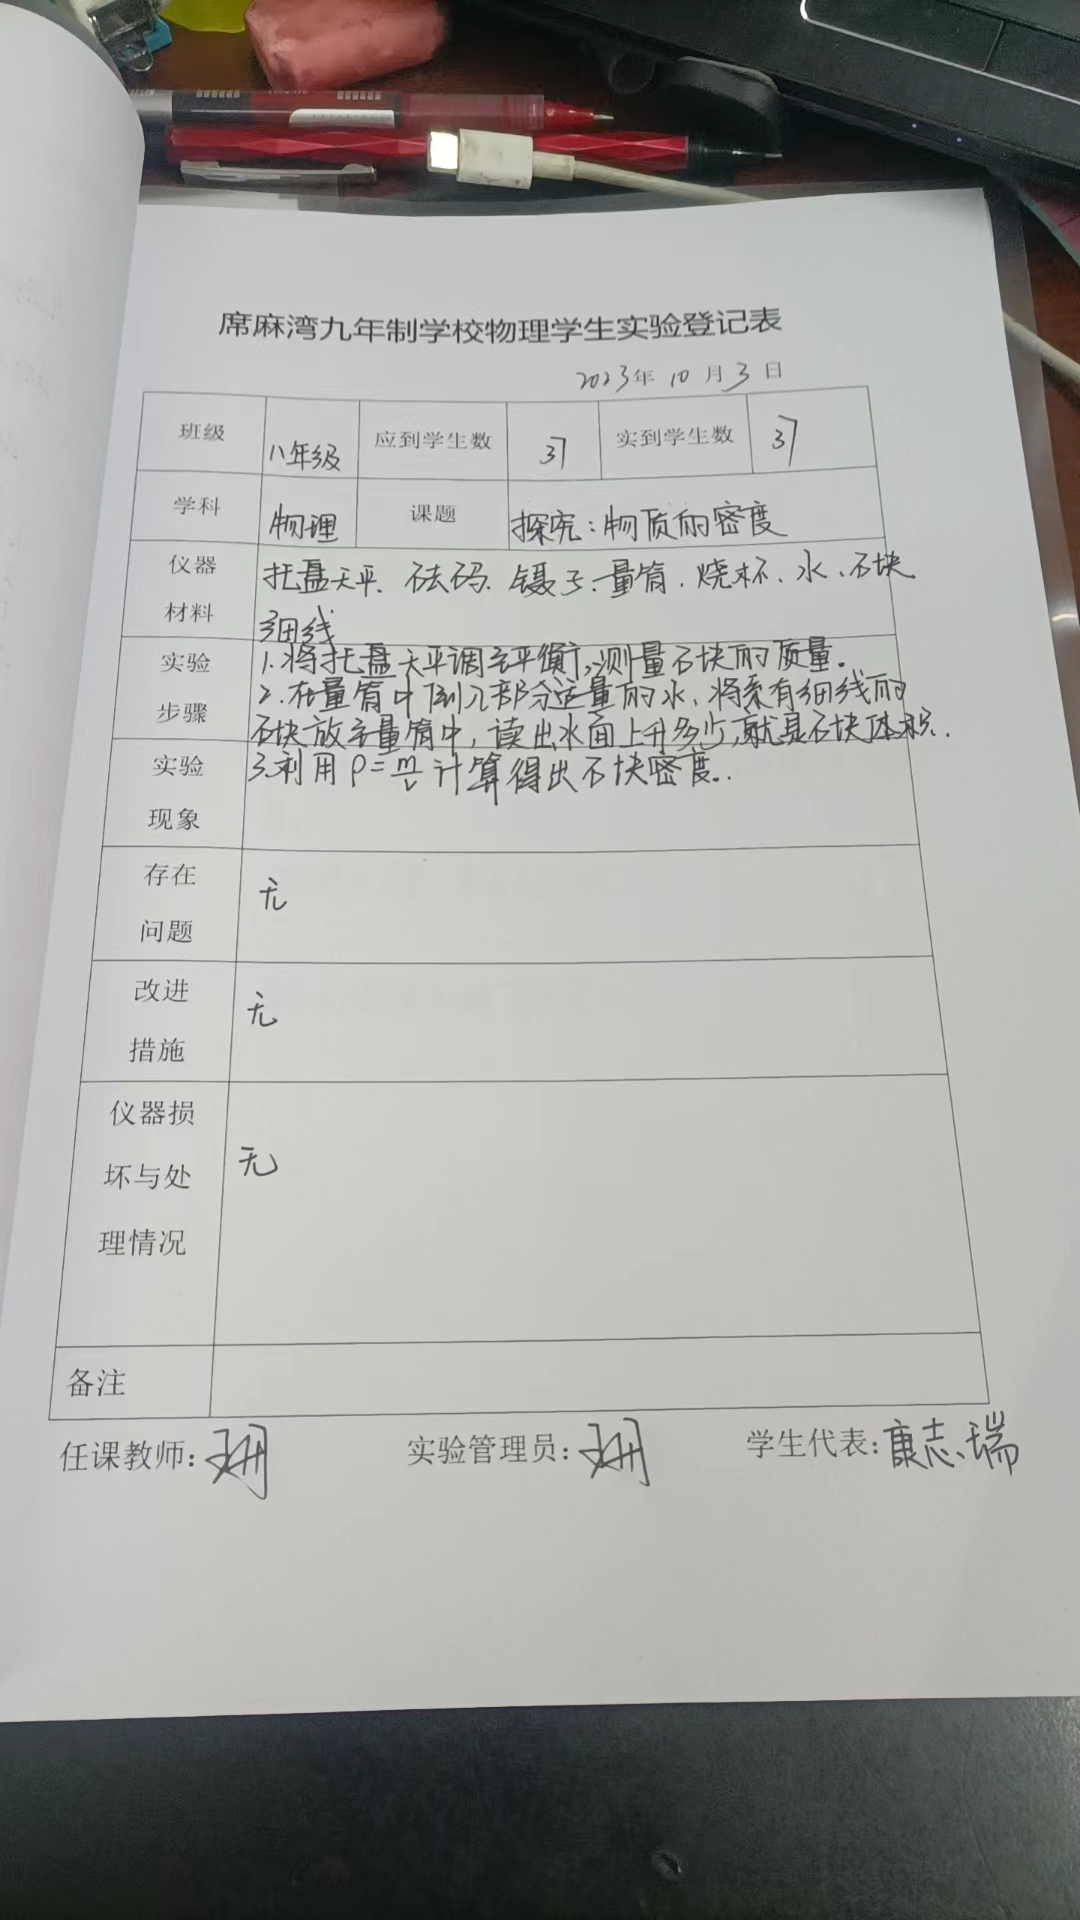 席麻湾九年制学校物理学生实验登记表
2023年 10月 3日
班级 八年级 应到学生数 37 实到学生数 37
学科 物理 课题 探究:物质的密度
仪器材料 托盘天平、砝码、镊子、量筒、烧杯、水、石块
细线
实验步骤 1.将托盘天平调至平衡,测量石块的质量。
2.在量筒中倒入部分适量的水,将系有细线的
石块放至量筒中,读出水面上升多少,就是石块体积.
实验现象 3.利用ρ=m/v计算得出石块密度.
存在问题 无
改进措施 无
仪器损坏与处理情况 无
备注
任课教师: 实验管理员: 学生代表:康志瑞